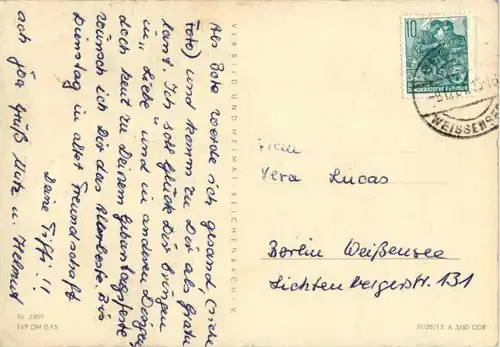 Als Bote werde ich gesand, (siehe
Foto) und komm zu Dir als Gratu
lant. Ich soll Glück Dir bringen
in, Liebe und in anderen Dingen
doch heut zu Deinem Geburtagsfeste
wünsch ich Dir das Allerbeste. Bis
Dienstag in alter Freundschaft
Deine Tiffi!!
ach joa Gruß Mutz u. Helmut
VERBILD UND HEIMAT REICHENBACH I. V.
10
DEMOKRATISCHE REPUBLIK
WEISSENSEE
Frau
Vera Lucas
Berlin Weißensee
Lichtenbergerstr. 131
Nr. 2469
EVP DM 0,15
A 3/60 DDR